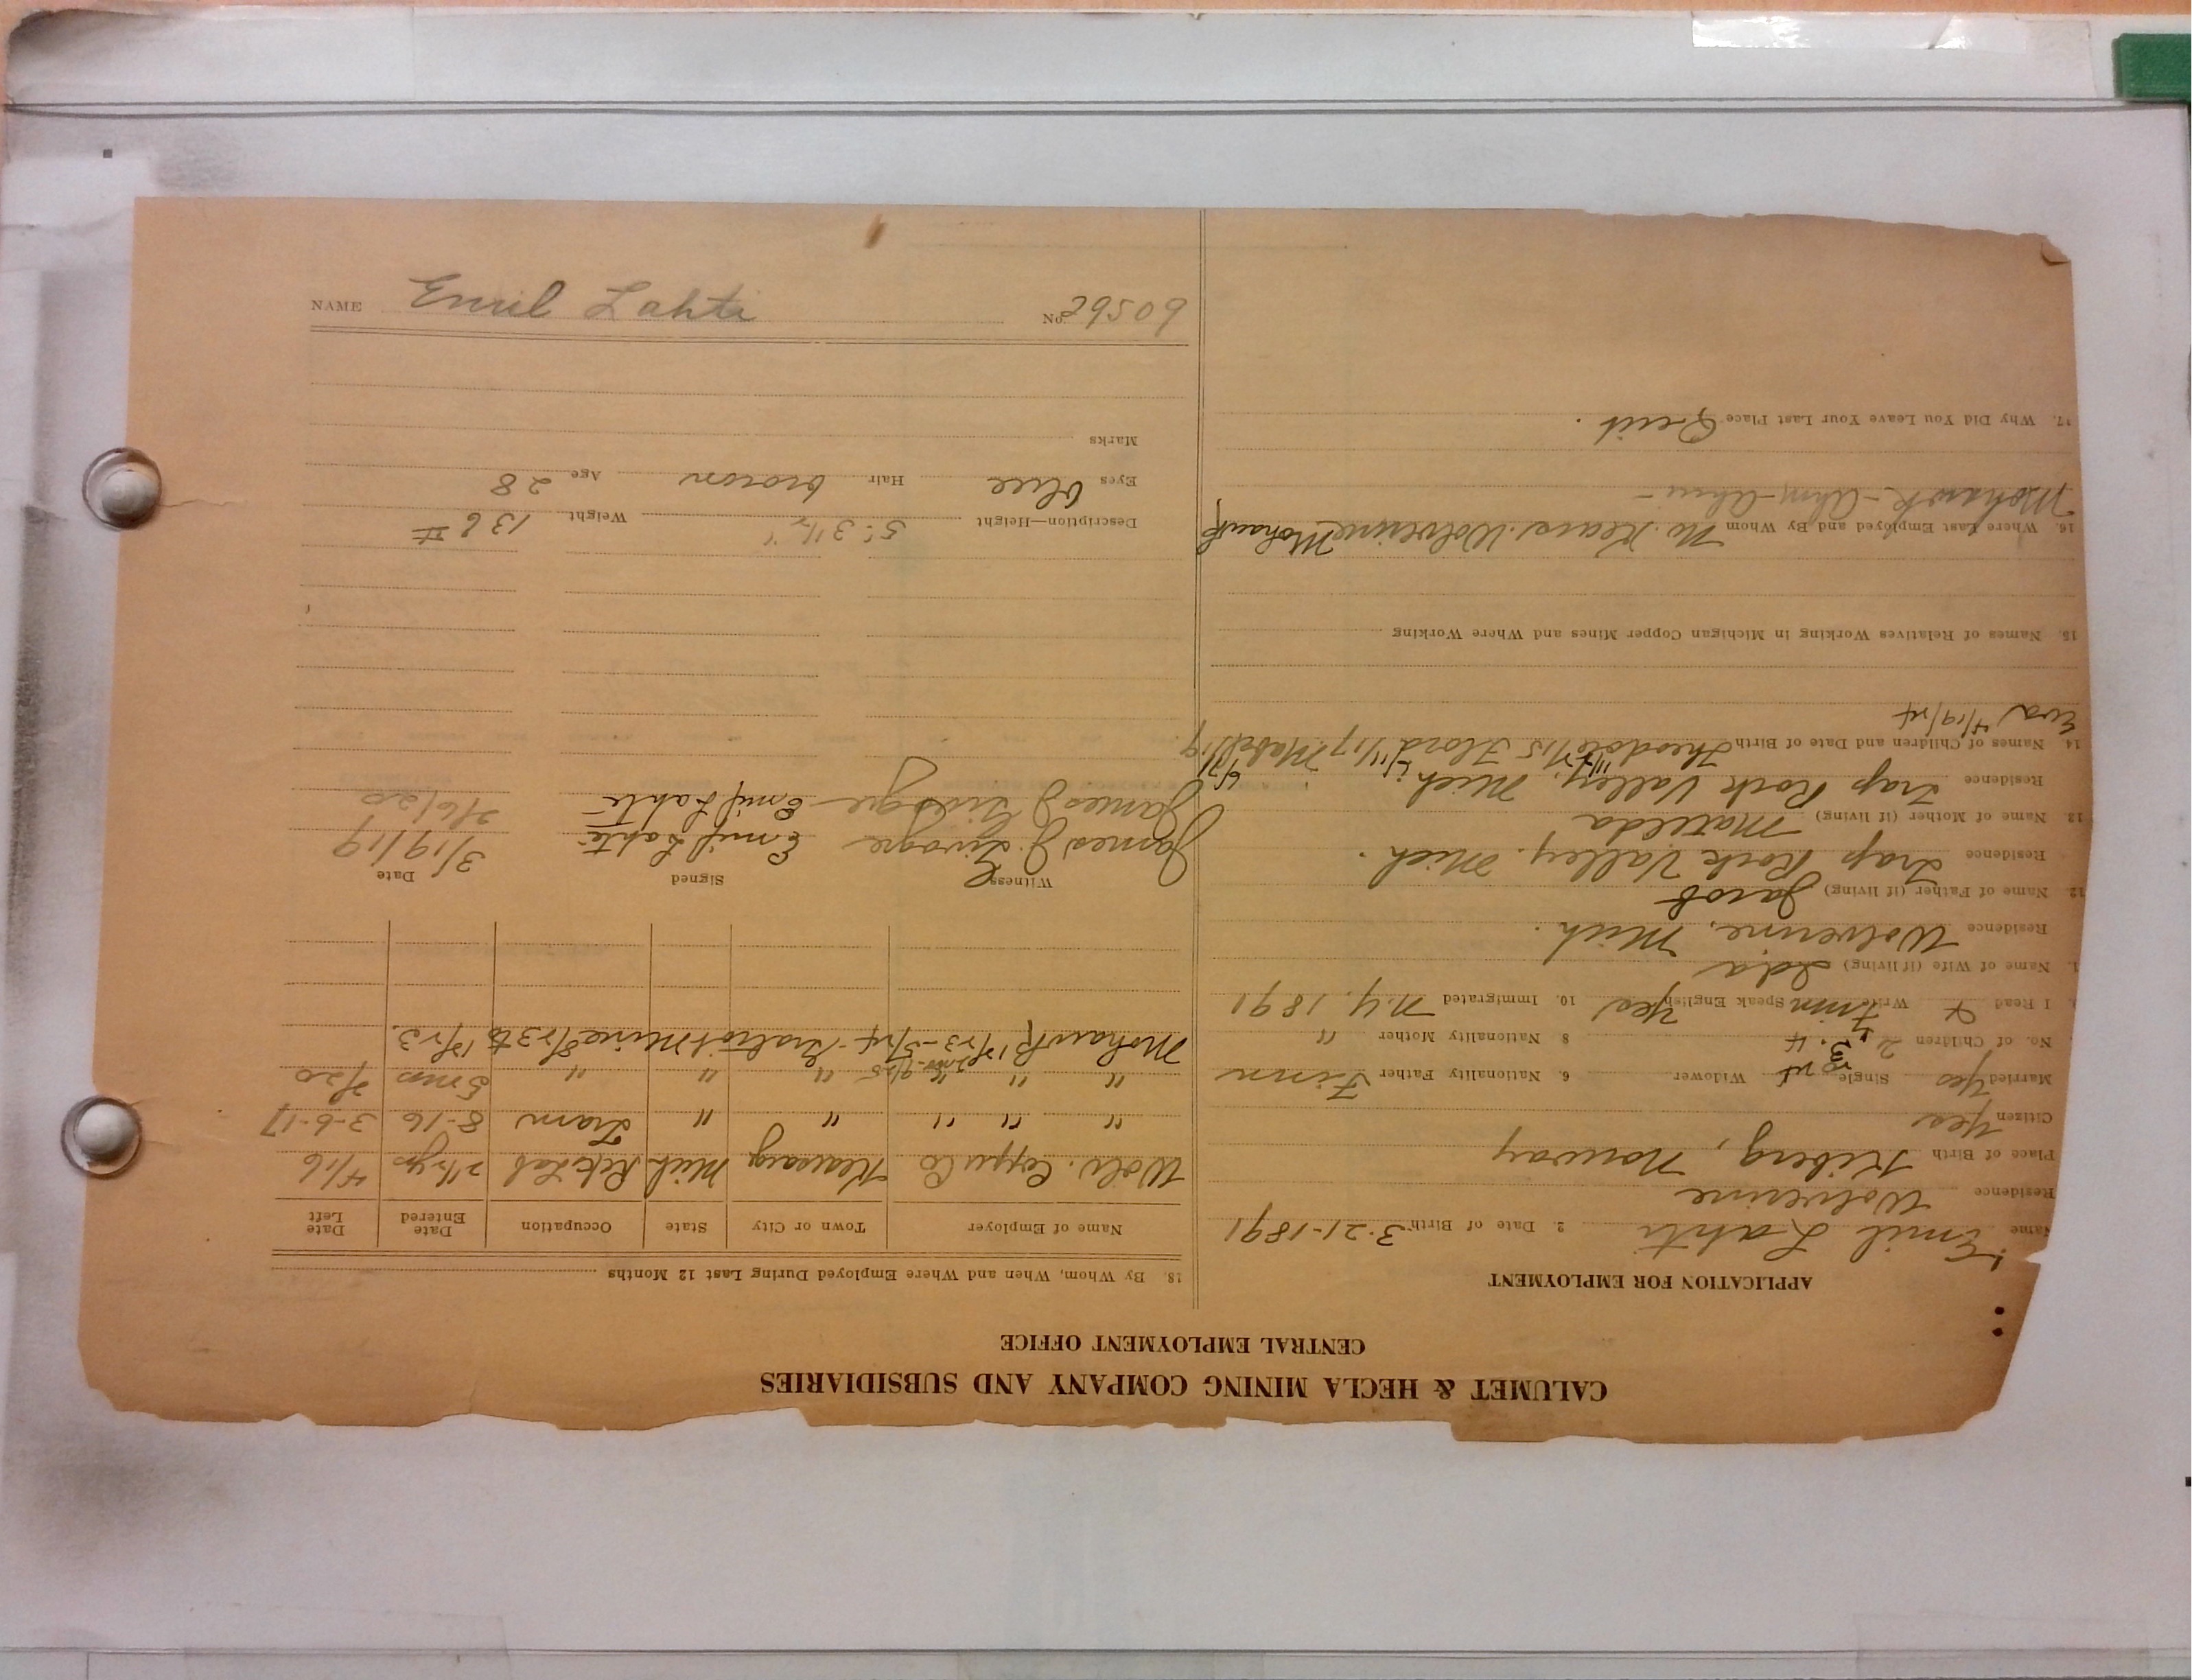 CALUMET & HECLA MINING COMPANY AND SUBSIDIARIES
CENTRAL EMPLOYMENT OFFICE
APPLICATION FOR EMPLOYMENT
Name Emil Lahti 2. Date of Birth 3-21-1891
Residence Wolverine
Place of Birth Kiberg, Norway
Citizen Yes
Married Yes Single Widower 6. Nationality Father Finn
No. of Children 2 3. 4 8 Nationality Mother "
9. I Read & Write Finn Speak English Yes 10. Immigrated N.Y. 1891
1. Name of Wife (if living) Ida
Residence Wolverine, Mich.
12. Name of Father (if living) Jacob
Residence Trap Rock Valley. Mich.
13. Name of Mother (if living) Matilda
Residence Trap Rock Valley, Mich.
14. Names of Children and Date of Birth
Eva 4/19/24
15. Names of Relatives Working in Michigan Copper Mines and Where Working
16. Where Last Employed and By Whom No. Kears. Wolverine Mohawk
Mohawk - Ahm-Ahm -
17. Why Did You Leave Your Last Place Quit.
18. By Whom, When and Where Employed During Last 12 Months
Name of Employer Town or City State Occupation Date Entered Date Left
Wolv. Copper Co Kearsarg Mich 2½ yrs 4/16
" " " " " Tram 8-16 3-6-17
" " " " " " 5 mos 2/20
Mohawk Gratiot Mine
Witness Signed Date
James J. Emil Lahti 3/19/19
James J. Emil Lahti 2/6/20
Description—Height 5' 3½" Weight 136 #
Eyes blue Hair brown Age 28
Marks
NAME Emil Lahti No. 29509